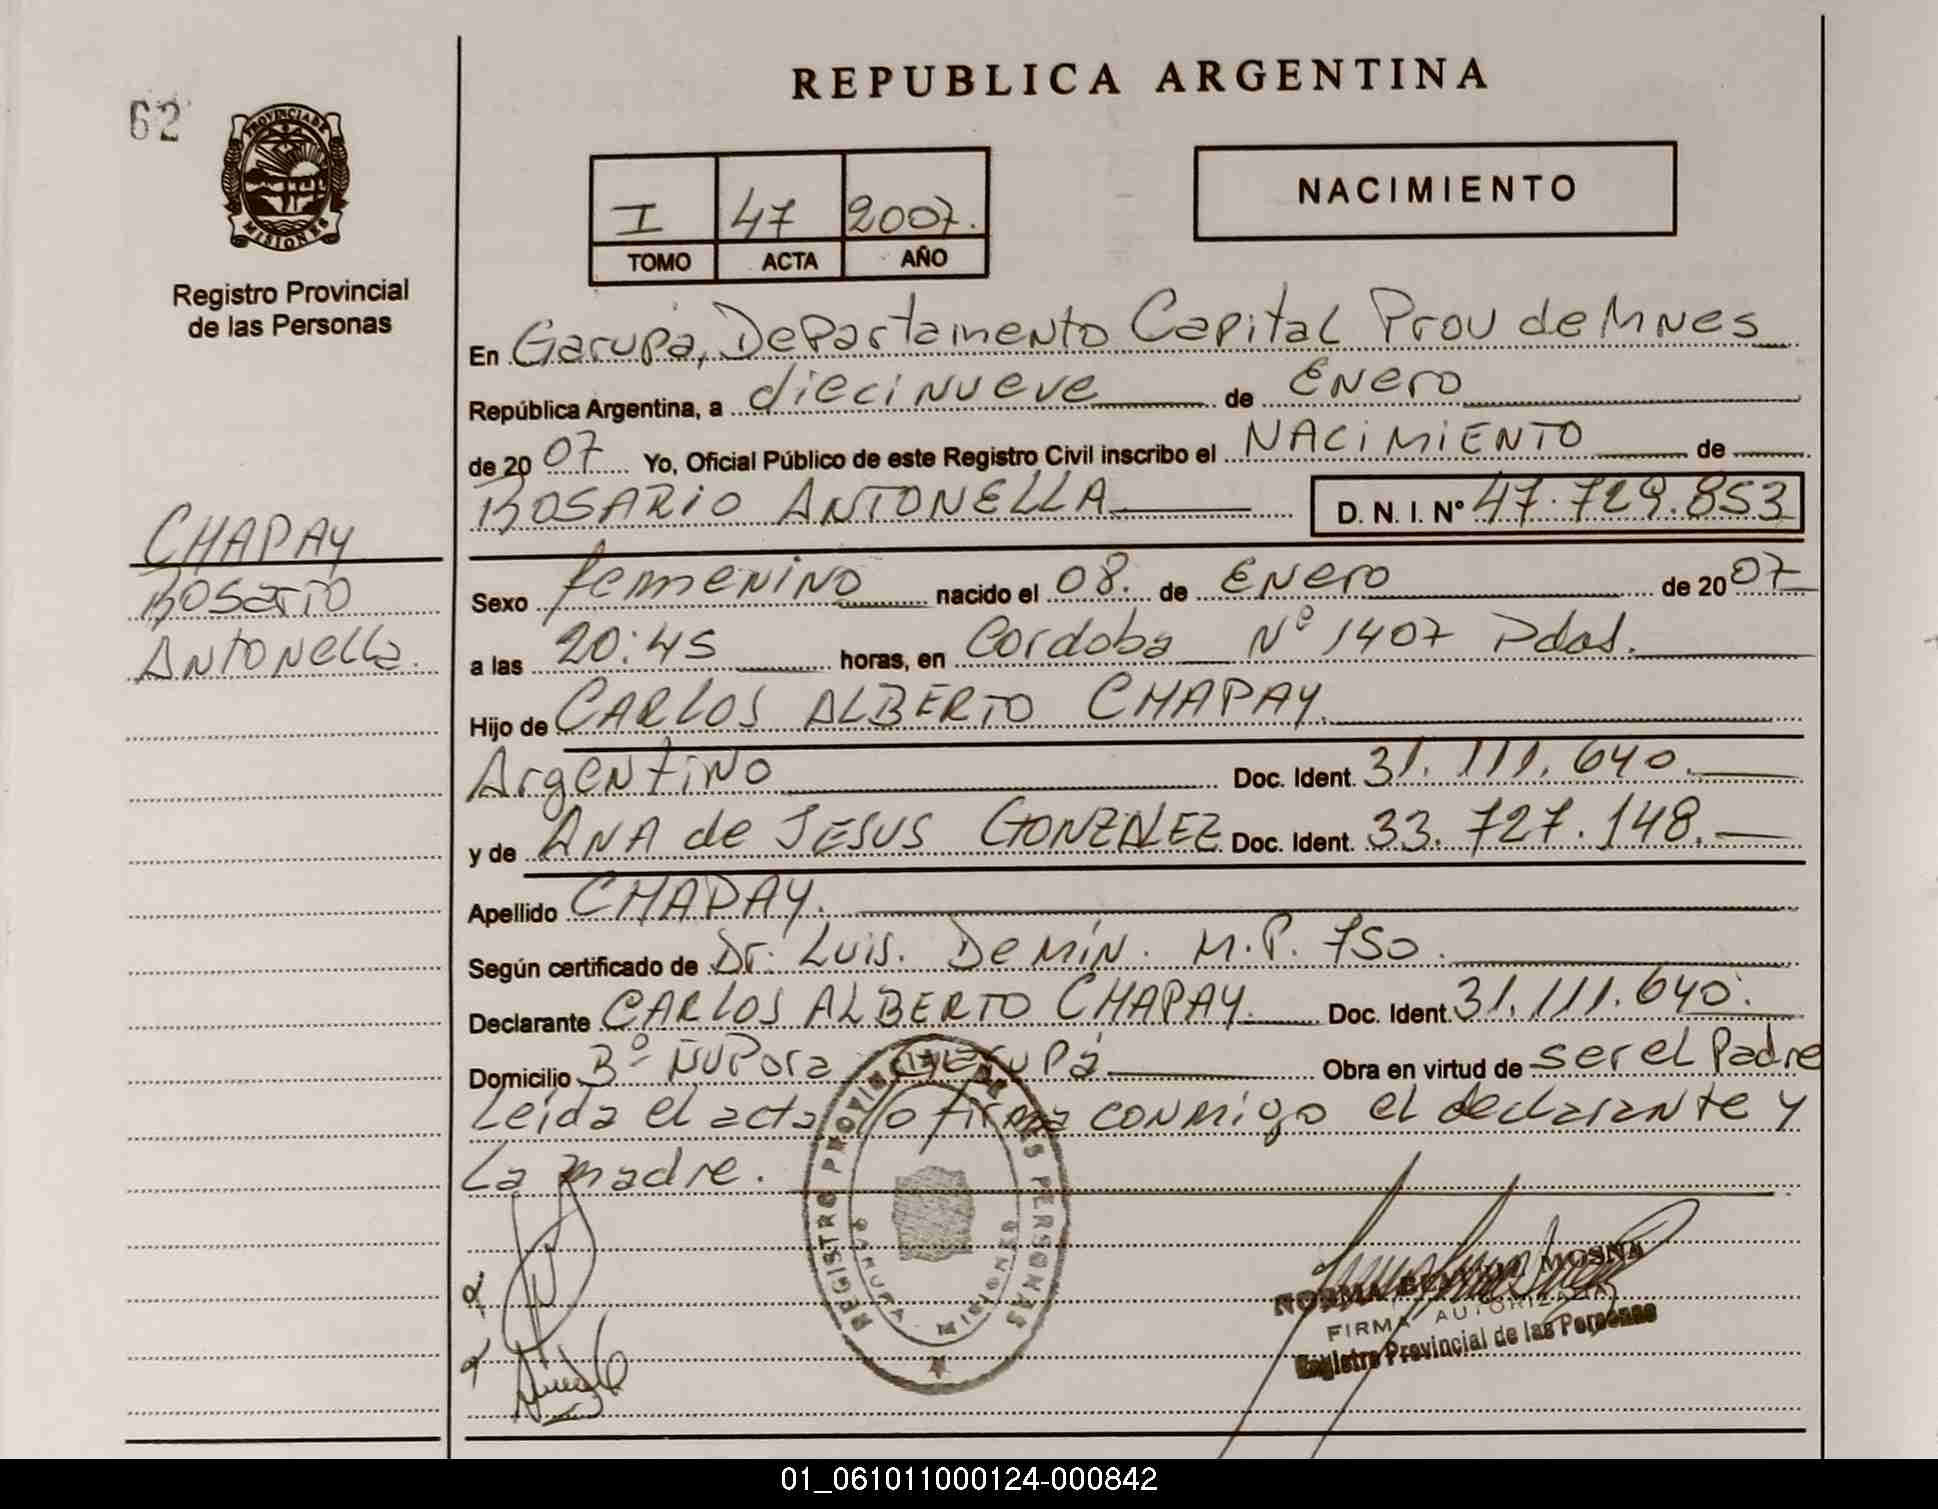 REPUBLICA ARGENTINA
62
PROVINCIA DE
MISIONES
Registro Provincial
de las Personas
I 47 2007.
TOMO ACTA AÑO
NACIMIENTO
En Garupá, Departamento Capital Prov de Mnes
República Argentina, a diecinueve de Enero
de 2007 Yo, Oficial Público de este Registro Civil inscribo el NACIMIENTO de
ROSARIO ANTONELLA D. N. I. Nº 47.729.853
CHAPAY
Rosario
Antonella.
Sexo femenino nacido el 08. de Enero de 2007
a las 20:45 horas, en Cordoba Nº 1407 Pdas.
Hijo de CARLOS ALBERTO CHAPAY.
Argentino Doc. Ident. 31.111.640.
y de ANA de JESUS GONZALEZ Doc. Ident. 33.727.148.
Apellido CHAPAY.
Según certificado de Dr. Luis. Demín. M.P. 750.
Declarante CARLOS ALBERTO CHAPAY. Doc. Ident. 31.111.640.
Domicilio Bº Ñu Pora Garupá Obra en virtud de ser el Padre
Leida el acta lo firma conmigo el declarante y
La madre.
REGISTRO PROVINCIAL DE LAS PERSONAS
GARUPA MISIONES
NORMA BEATRIZ MOSNA
FIRMA AUTORIZADA
Registro Provincial de las Personas
01_061011000124-000842